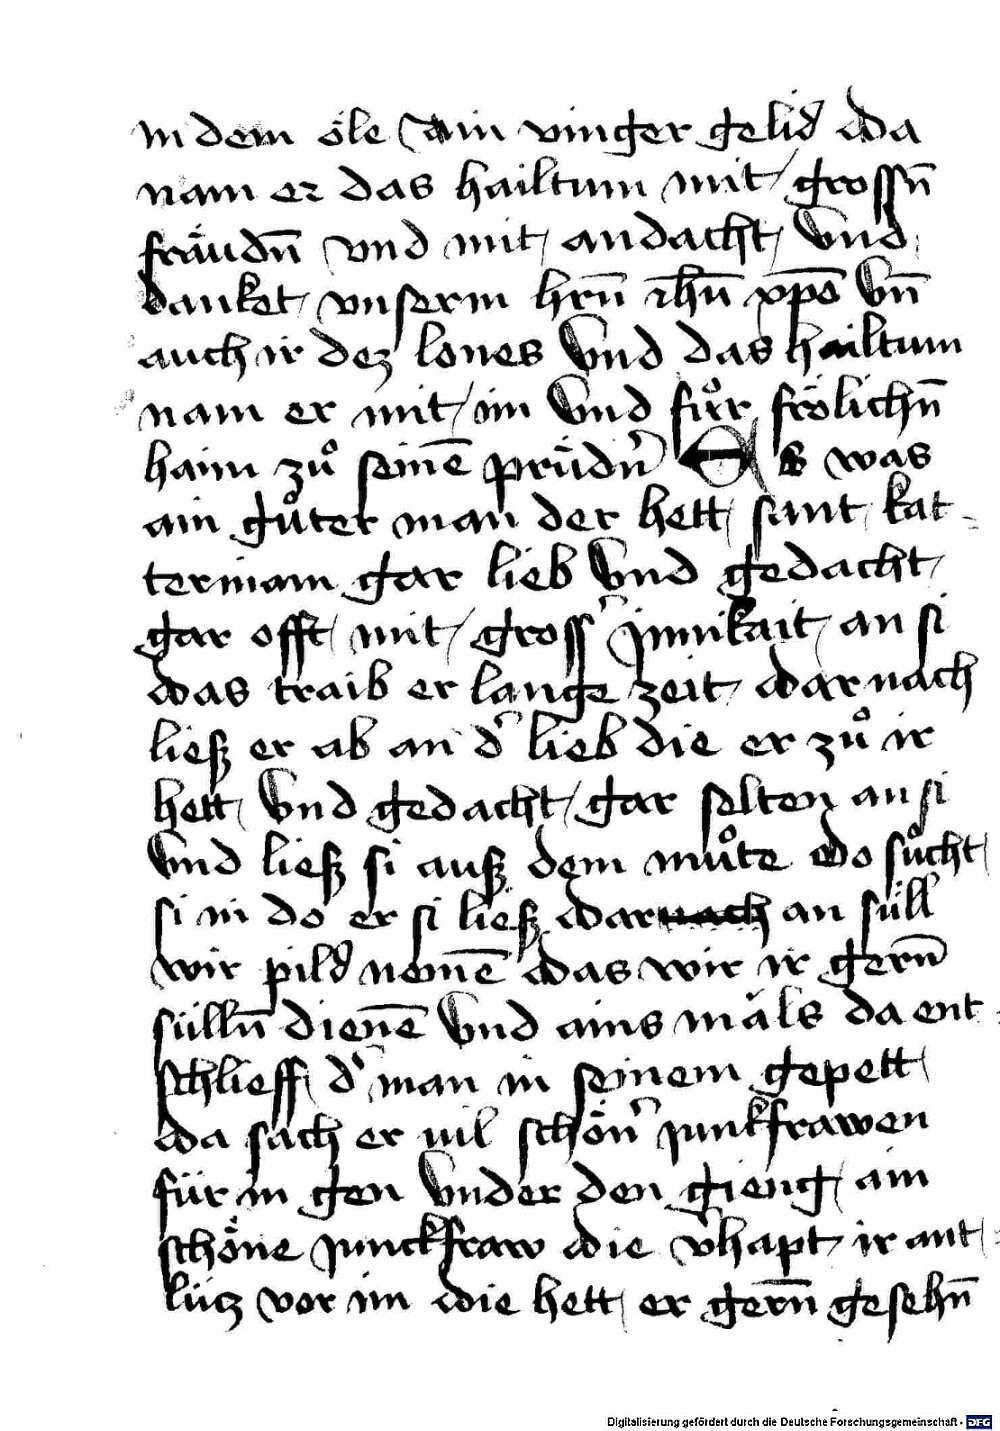 in dem öle ain vinger gelid Da
nam er das hailtum mit grossn̄
fräudn̄ vnd mit andacht Vnd
danket vnserm hrn̄ ihn̄ xp̄o Vn̄
auch ir dez lones Vnd das hailtum
nam er mit im Vnd fuͦr frölichn̄
haim zuͦ seinē prüdn̓ Es was
ain guͦter man der hett sant kat
terinam gar lieb Vnd gedacht
gar offt mit gross̓ jnnikait an si
Das traib er lange zeit Darnach
liesz er ab an d̓ lieb die er zuͦ ir
hett Vnd gedacht gar selten an si
Vnd liesz si ausz dem muͦte Do suͦcht
si in do er si liesz Dar an süll̓
wir pild nemē Das wir ir gern̄
sülln̄ dienē Vnd ains mäls da ent
schlieff d̓ man in seinem gepett
Da sach er uil schön̓ junkfrawen
für in gen Vnder den gieng ain
schöne junckfraw Die v̓hapt ir ant
lücz vor im Die hett er gern̄ gesehn̄
Digitalisierung gefördert durch die Deutsche Forschungsgemeinschaft - DFG